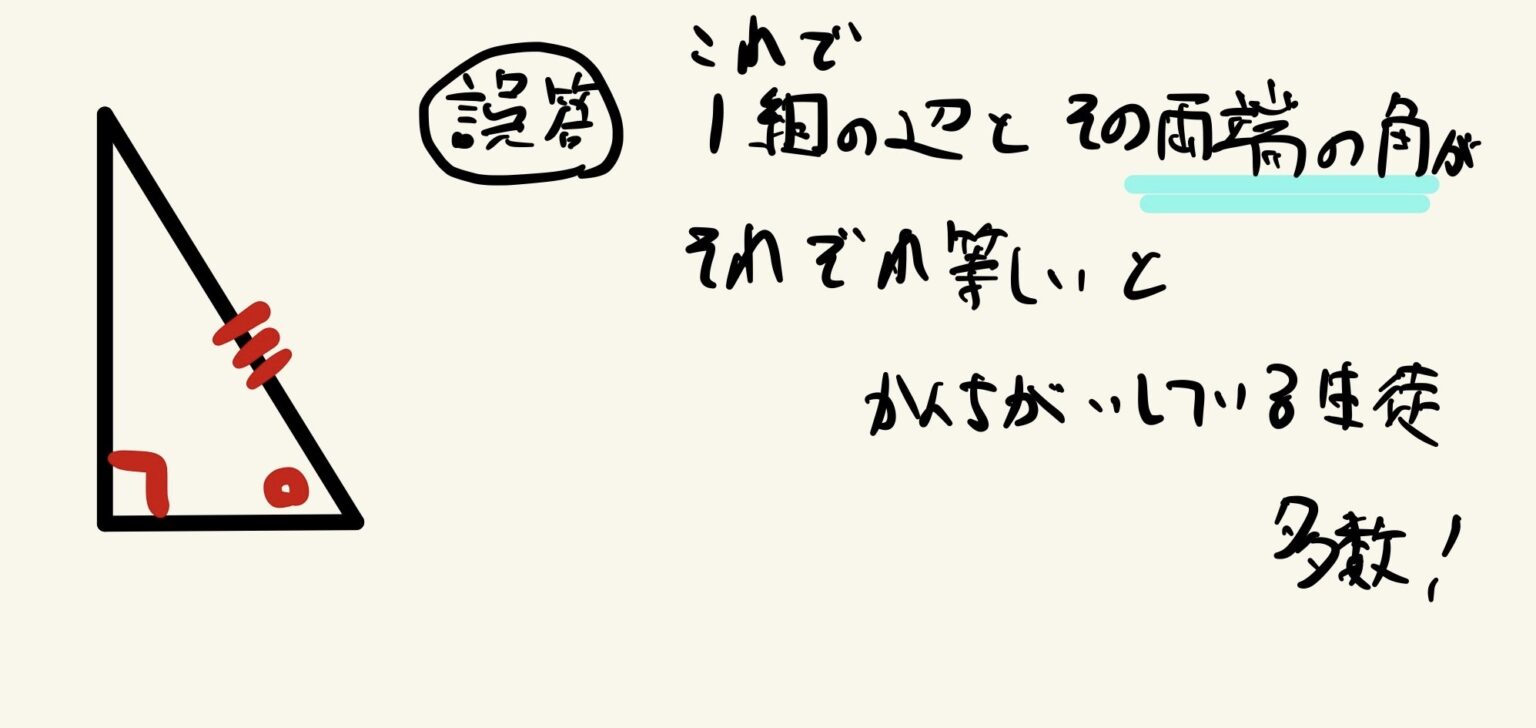 誤答
これで
1組の辺とその両端の角が
それぞれ等しいと
かんちがいしている生徒
多数!